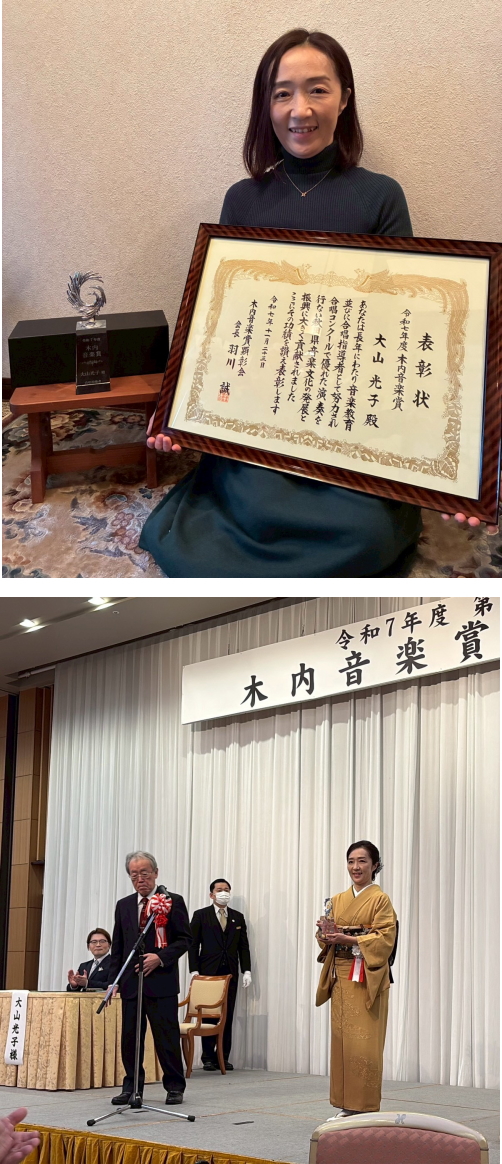 表彰状
令和七年度 木内音楽賞
大山 光子 殿
あなたは長年にわたり音楽教育
並びに合唱指導者として努力され
合唱コンクールで優れた演奏を
行ない
県音楽文化の発展と
振興に大きく貢献されました
ここにその功績を讃え表彰します
令和七年十一月二十三日
木内音楽賞顕彰会
会長 羽川 誠
木内
音楽賞
令和7年度 第
木内音楽賞
大山光子様